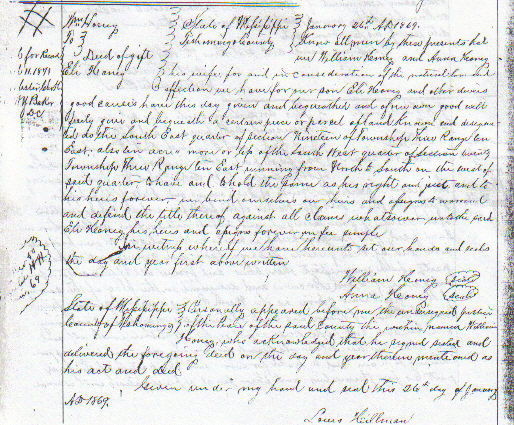 Wm Honey } State of Mississippi } January 26th AD 1869.
To } Tishomingo County } Know all men by these presents that
Deed of gift we William Honey and Anna Honey
Eli Honey his wife for and in consideration of the natural love and
affection we have for our son Eli Honey and other divers
good causes have this day given and bequeathed and of our own good will
freely give and bequeath a certain piece or parcel of land known and designa
ted as the South East quarter of Section Nineteen of Township Three Range ten
East. also ten acres more or less of the South West quarter of Section twenty
Township Three Range ten East running from North to South on the west of
said quarter To have and to hold the same as his right and and to
his heirs forever we bind ourselves our heirs and assigns to warrent
and defend the title thereof against all claims whatsoever unto the said
Eli Honey his heirs and assigns forever in fee simple
In witness whereof we have hereunto set our hands and seals
the day and year first above written
William Honey (seal)
Anna Honey (seal)
State of Mississippi } Personally appeared before me the undersigned justice
County of Tishomingo } of the Peace of the said County the within named William
Honey, who acknowledged that he signed sealed and
delivered the foregoing deed on the day and year therein mentioned as
his act and deed
Given under my hand and seal this 26th day of January
AD 1869.
Louis Hillman
for Record
1871
Baker
DC
69